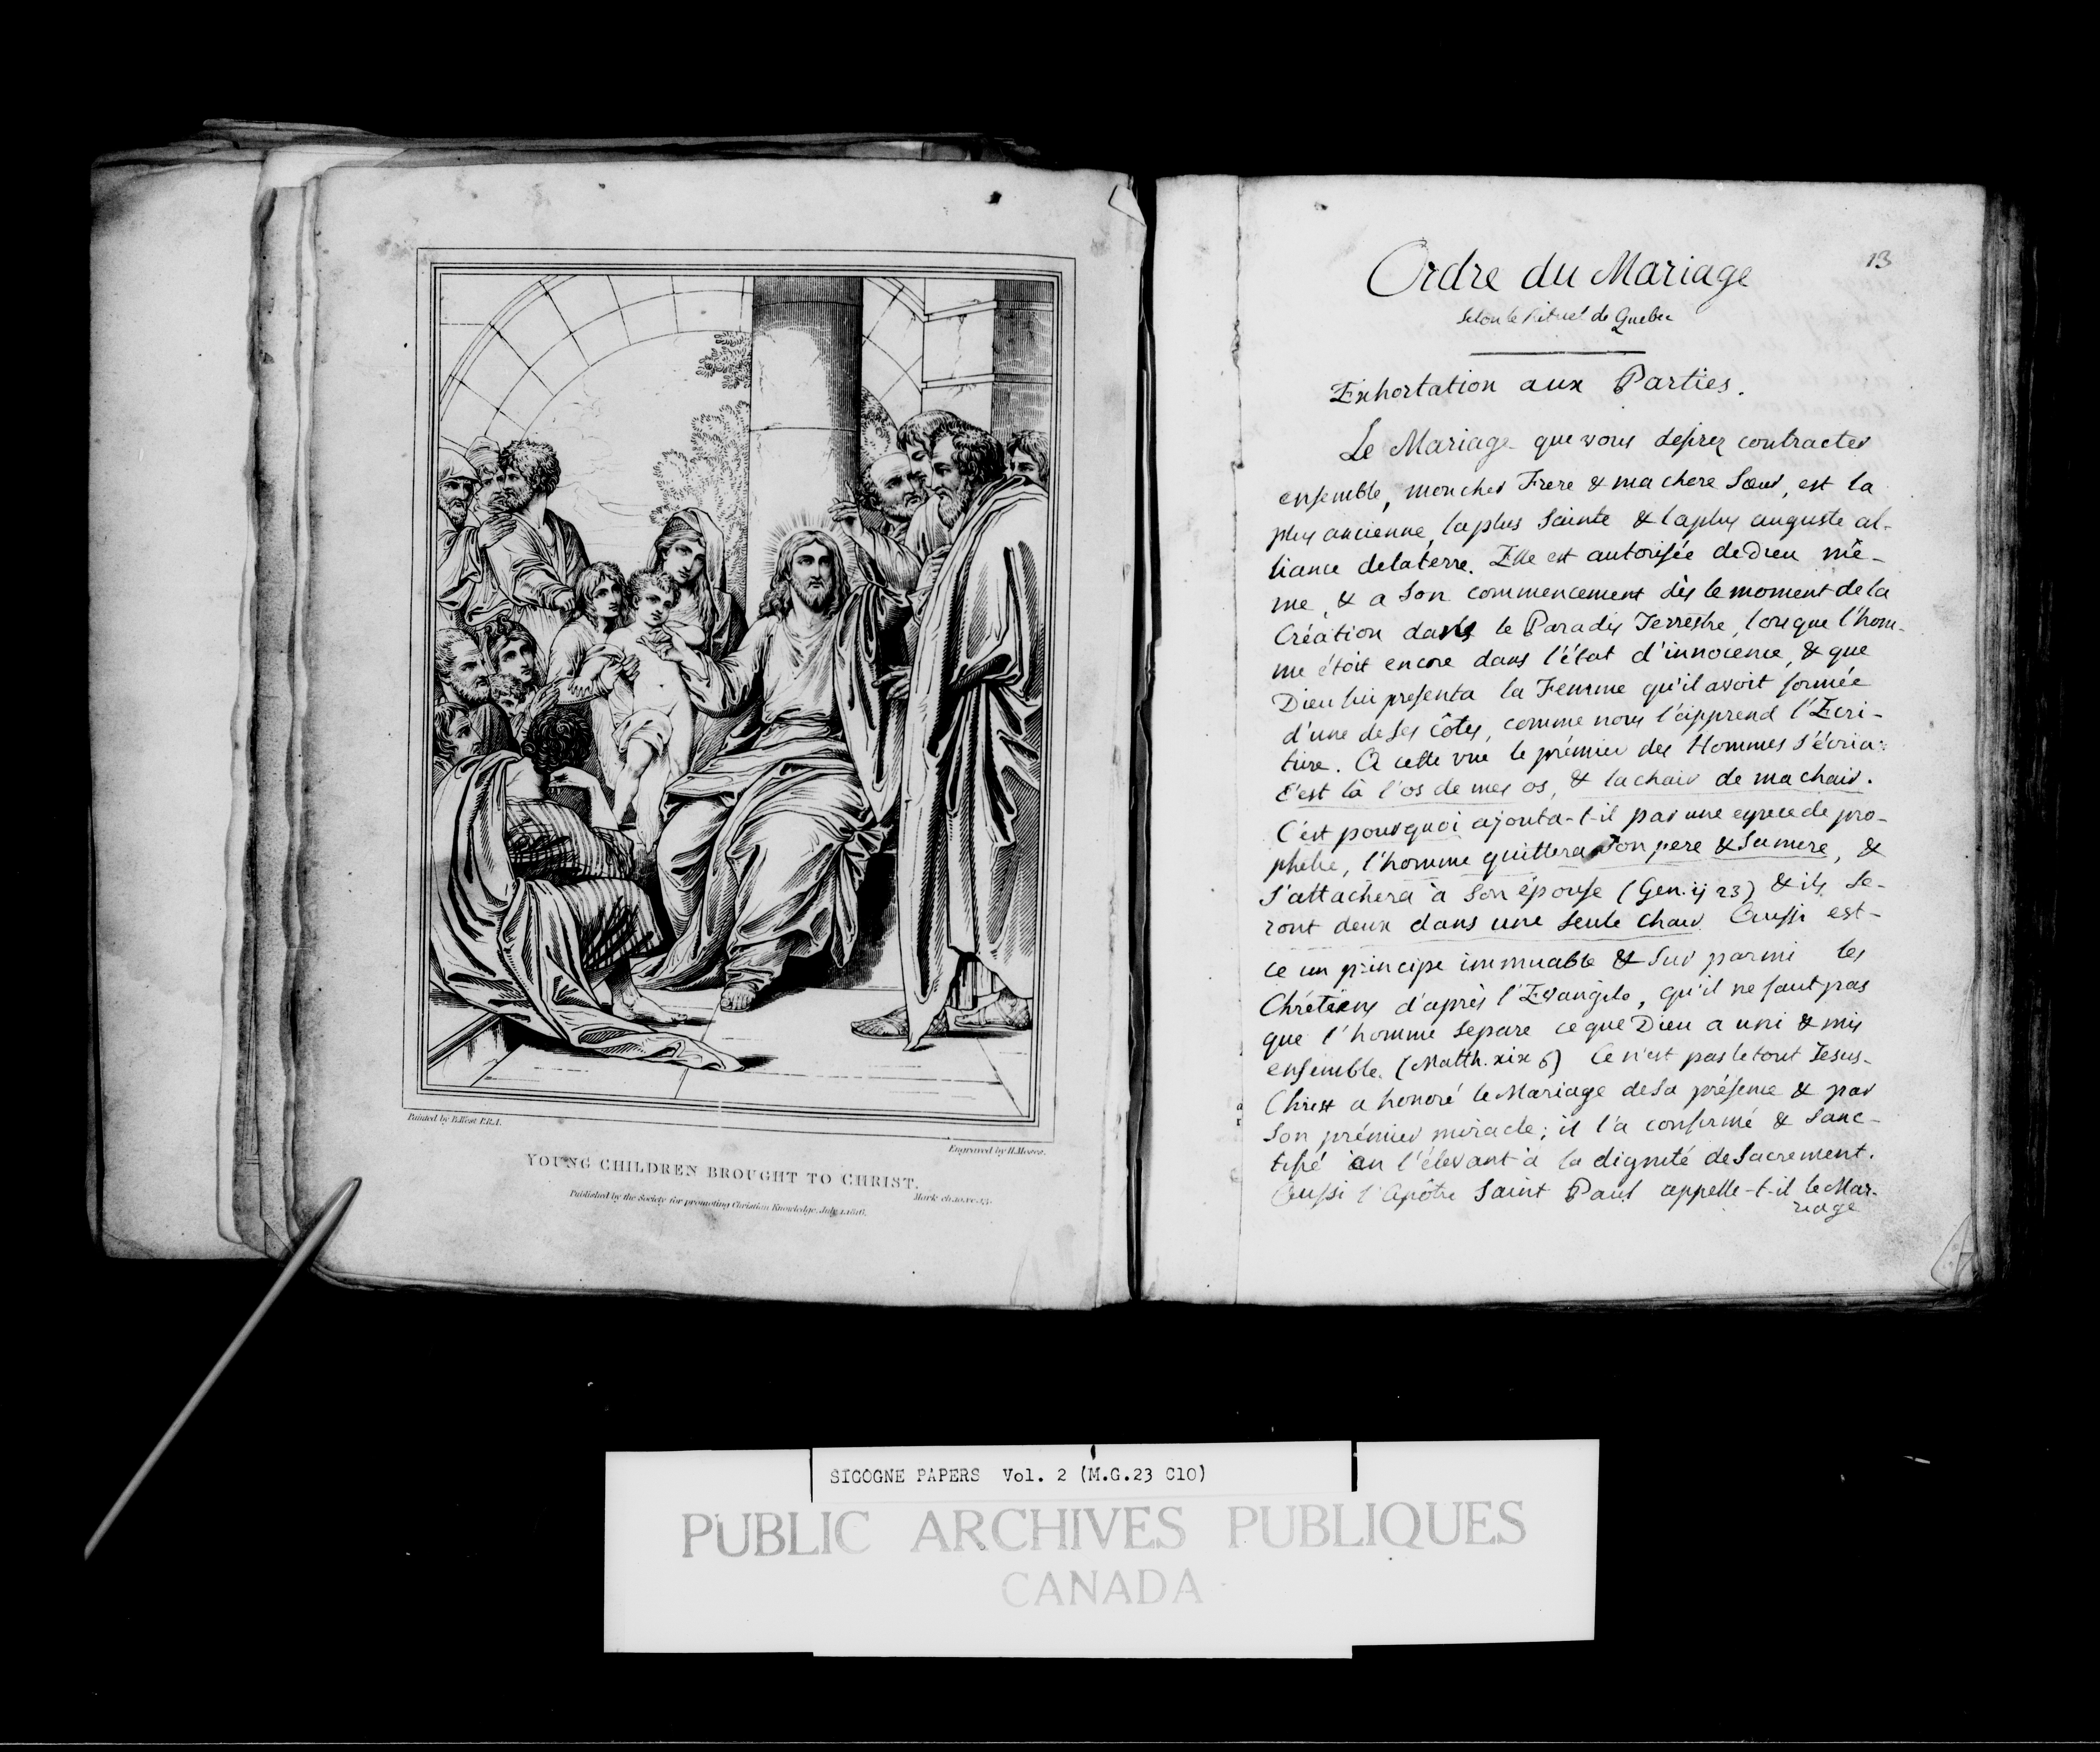 Painted by B. West P.R.A.
Engraved by H. Moses.
YOUNG CHILDREN BROUGHT TO CHRIST.
Mark ch.10.ve.13.
Published by the Society for promoting Christian Knowledge, July 1.1816.
13
Ordre du Mariage
Selon le Rituel de Quebec
Exhortation aux Parties.
Le Mariage que vous desirez contracter
ensemble, mon cher Frere & ma chere Sœur, est la
plus ancienne, la plus Sainte & la plus auguste al-
liance de la terre. Elle est autorisée de Dieu mê-
me, & a Son commencement dès le moment de la
Création dans le Paradis Terrestre, lorsque l'hom-
me étoit encore dans l'état d'innocence, & que
Dieu lui presenta la Femme qu'il avoit formée
d'une de Ses côtes, comme nous l'apprend l'Ecri-
ture. A cette vue le prémier des Hommes s'écria:
C'est là l'os de mes os, & la chair de ma chair.
C'est pourquoi ajouta-t-il par une espece de pro-
phetie, l'homme quittera Son pere & Sa mere, &
S'attachera à Son épouse (Gen. ij 23) & ils Se-
ront deux dans une Seule chair. Aussi est-
ce un principe immuable & Sur parmi les
Chrétiens d'après l'Evangile, qu'il ne faut pas
que l'homme Separe ce que Dieu a uni & mis
ensemble. (Matth. xix 6) Ce n'est pas le tout Jesus-
Christ a honoré le Mariage de Sa présence & par
Son prémier miracle; il l'a confirmé & Sanc-
tifié en l'élevant à la dignité de Sacrement.
Aussi l'Apôtre Saint Paul appelle-t-il le Mar-
riage
SICOGNE PAPERS Vol. 2 (M.G.23 C10)
PUBLIC ARCHIVES PUBLIQUES
CANADA